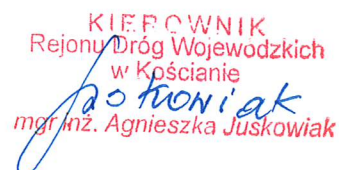 KIEROWNIK
Rejonu Dróg Wojewódzkich
w Kościanie
mgr inż. Agnieszka Juskowiak